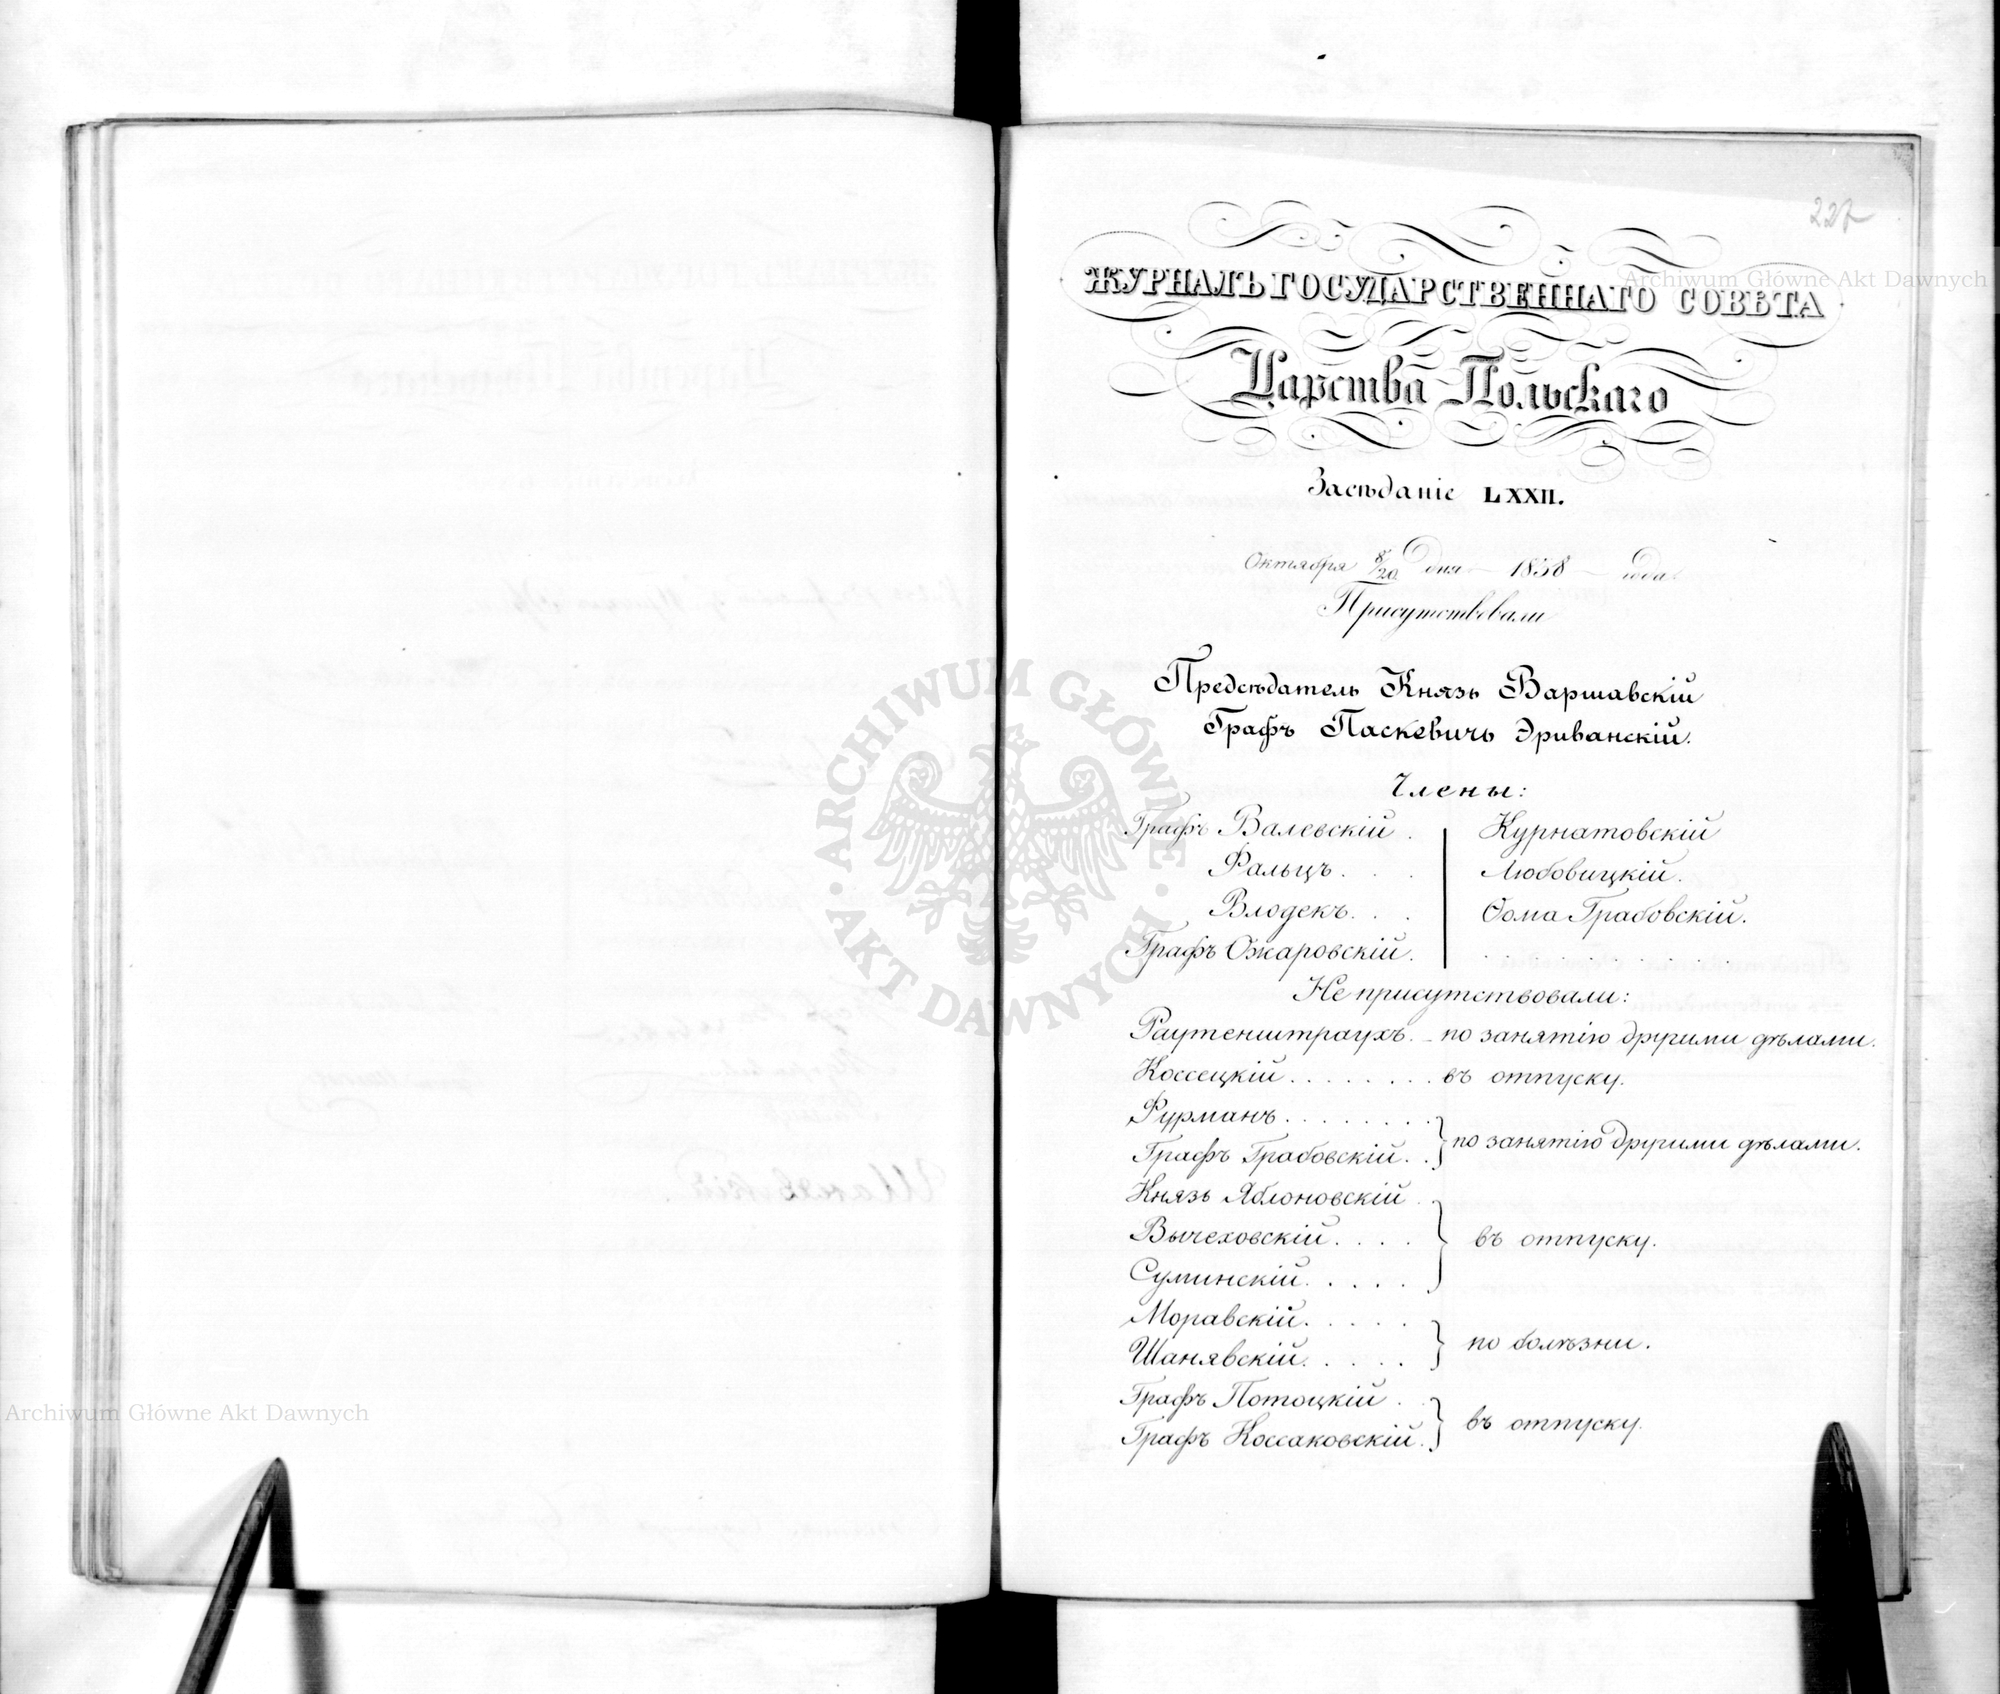 227
ЖУРНАЛЪ ГОСУДАРСТВЕННАГО СОВѢТА
Царства Польскаго
Засѣданіе LXXII.
Октября 8/20 дня 1838 года.
Присутствовали
Предсѣдатель Князь Варшавскій
Графъ Паскевичь Эриванскій.
Члены:
Графъ Валевскій . Курнатовскій
Фальцъ. . . Любовицкій.
Влодекъ. . . Ѳома Грабовскій.
Графъ Ожаровскій. . . . . . . . .
Не присутствовали:
Раутенштраухъ. – по занятію другими дѣлами.
Коссецкій . . . . . . . . въ отпуску.
Фурманъ . . . . . . . .
Графъ Грабовскій. . } по занятію другими дѣлами.
Князь Яблоновскій .
Вычеховскій. . . . } въ отпуску.
Суминскій. . . . .
Моравскій. . . . .
Шанявскій. . . . . } по болѣзни.
Графъ Потоцкій . .
Графъ Коссаковскій. } въ отпуску.
ARCHIWUM GŁÓWNE
AKT DAWNYCH
Archiwum Główne Akt Dawnych
Archiwum Główne Akt Dawnych